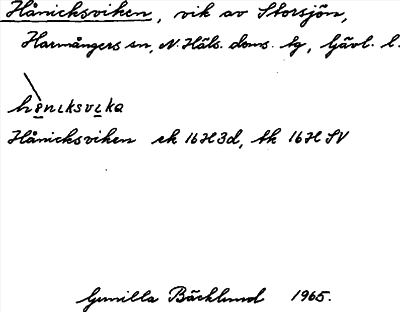 Hånicksviken, vik av Storsjön,
Harmångers sn, N. Häls. doms. tg, Gävl. l.
Hånicksviken ek 16H3d, tk 16H SV
Gunilla Bäcklund 1965.